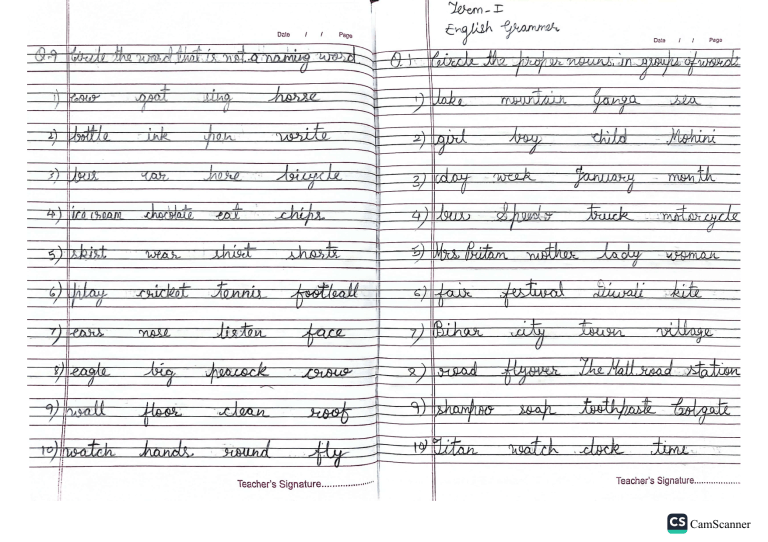 Date / / Page
Q.2 Circle the word that is not a naming word
1) cow goat sing horse
2) bottle ink pen write
3) bus car here bicycle
4) ice cream chocolate eat chips
5) skirt wear shirt shorts
6) play cricket tennis football
7) ears nose listen face
8) eagle big peacock crow
9) wall floor clean roof
10) watch hands round fly
Teacher's Signature
Term - I
English Grammer
Date / / Page
Q.1 Circle the proper nouns in groups of words
1) lake mountain Ganga sea
2) girl boy child Mohini
3) day week January month
4) bus Speedo truck motorcycle
5) Mrs Pritan mother lady woman
6) fair festival Diwali kite
7) Bihar city town village
8) road flyover The Mall road station
9) shampoo soap toothpaste Colgate
10) Titan watch clock time
Teacher's Signature
CS CamScanner